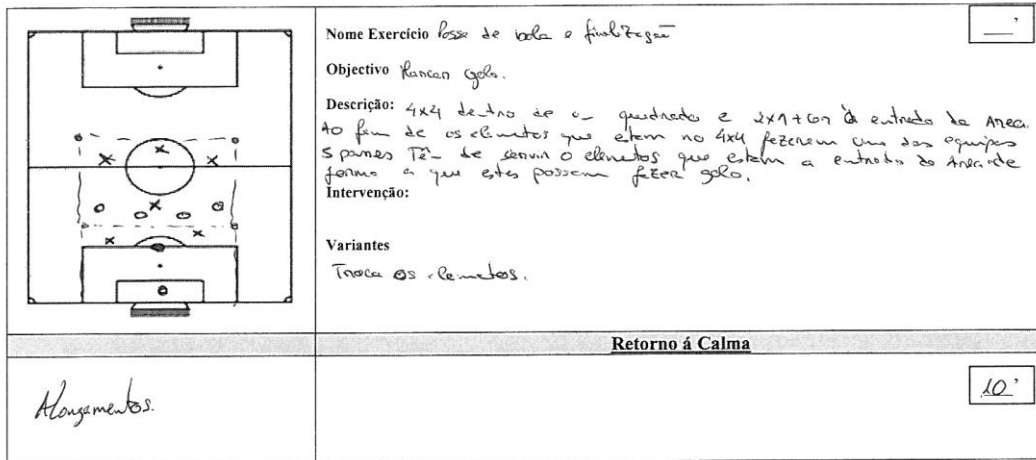 Nome Exercício Posse de bola e finalização
__'
Objectivo Marcar golo.
Descrição: 4x4 dentro de um quadrado e 2x1+GR à entrada da Area.
Ao fim de os elementos que estam no 4x4 fezerem uma das equipas
5 passes Têm de servir o elementos que estam a entrada da Area de
forma a que estes possam fazer golo.
Intervenção:
Variantes
Troca os elementos.
Retorno á Calma
Alongamentos.
10'